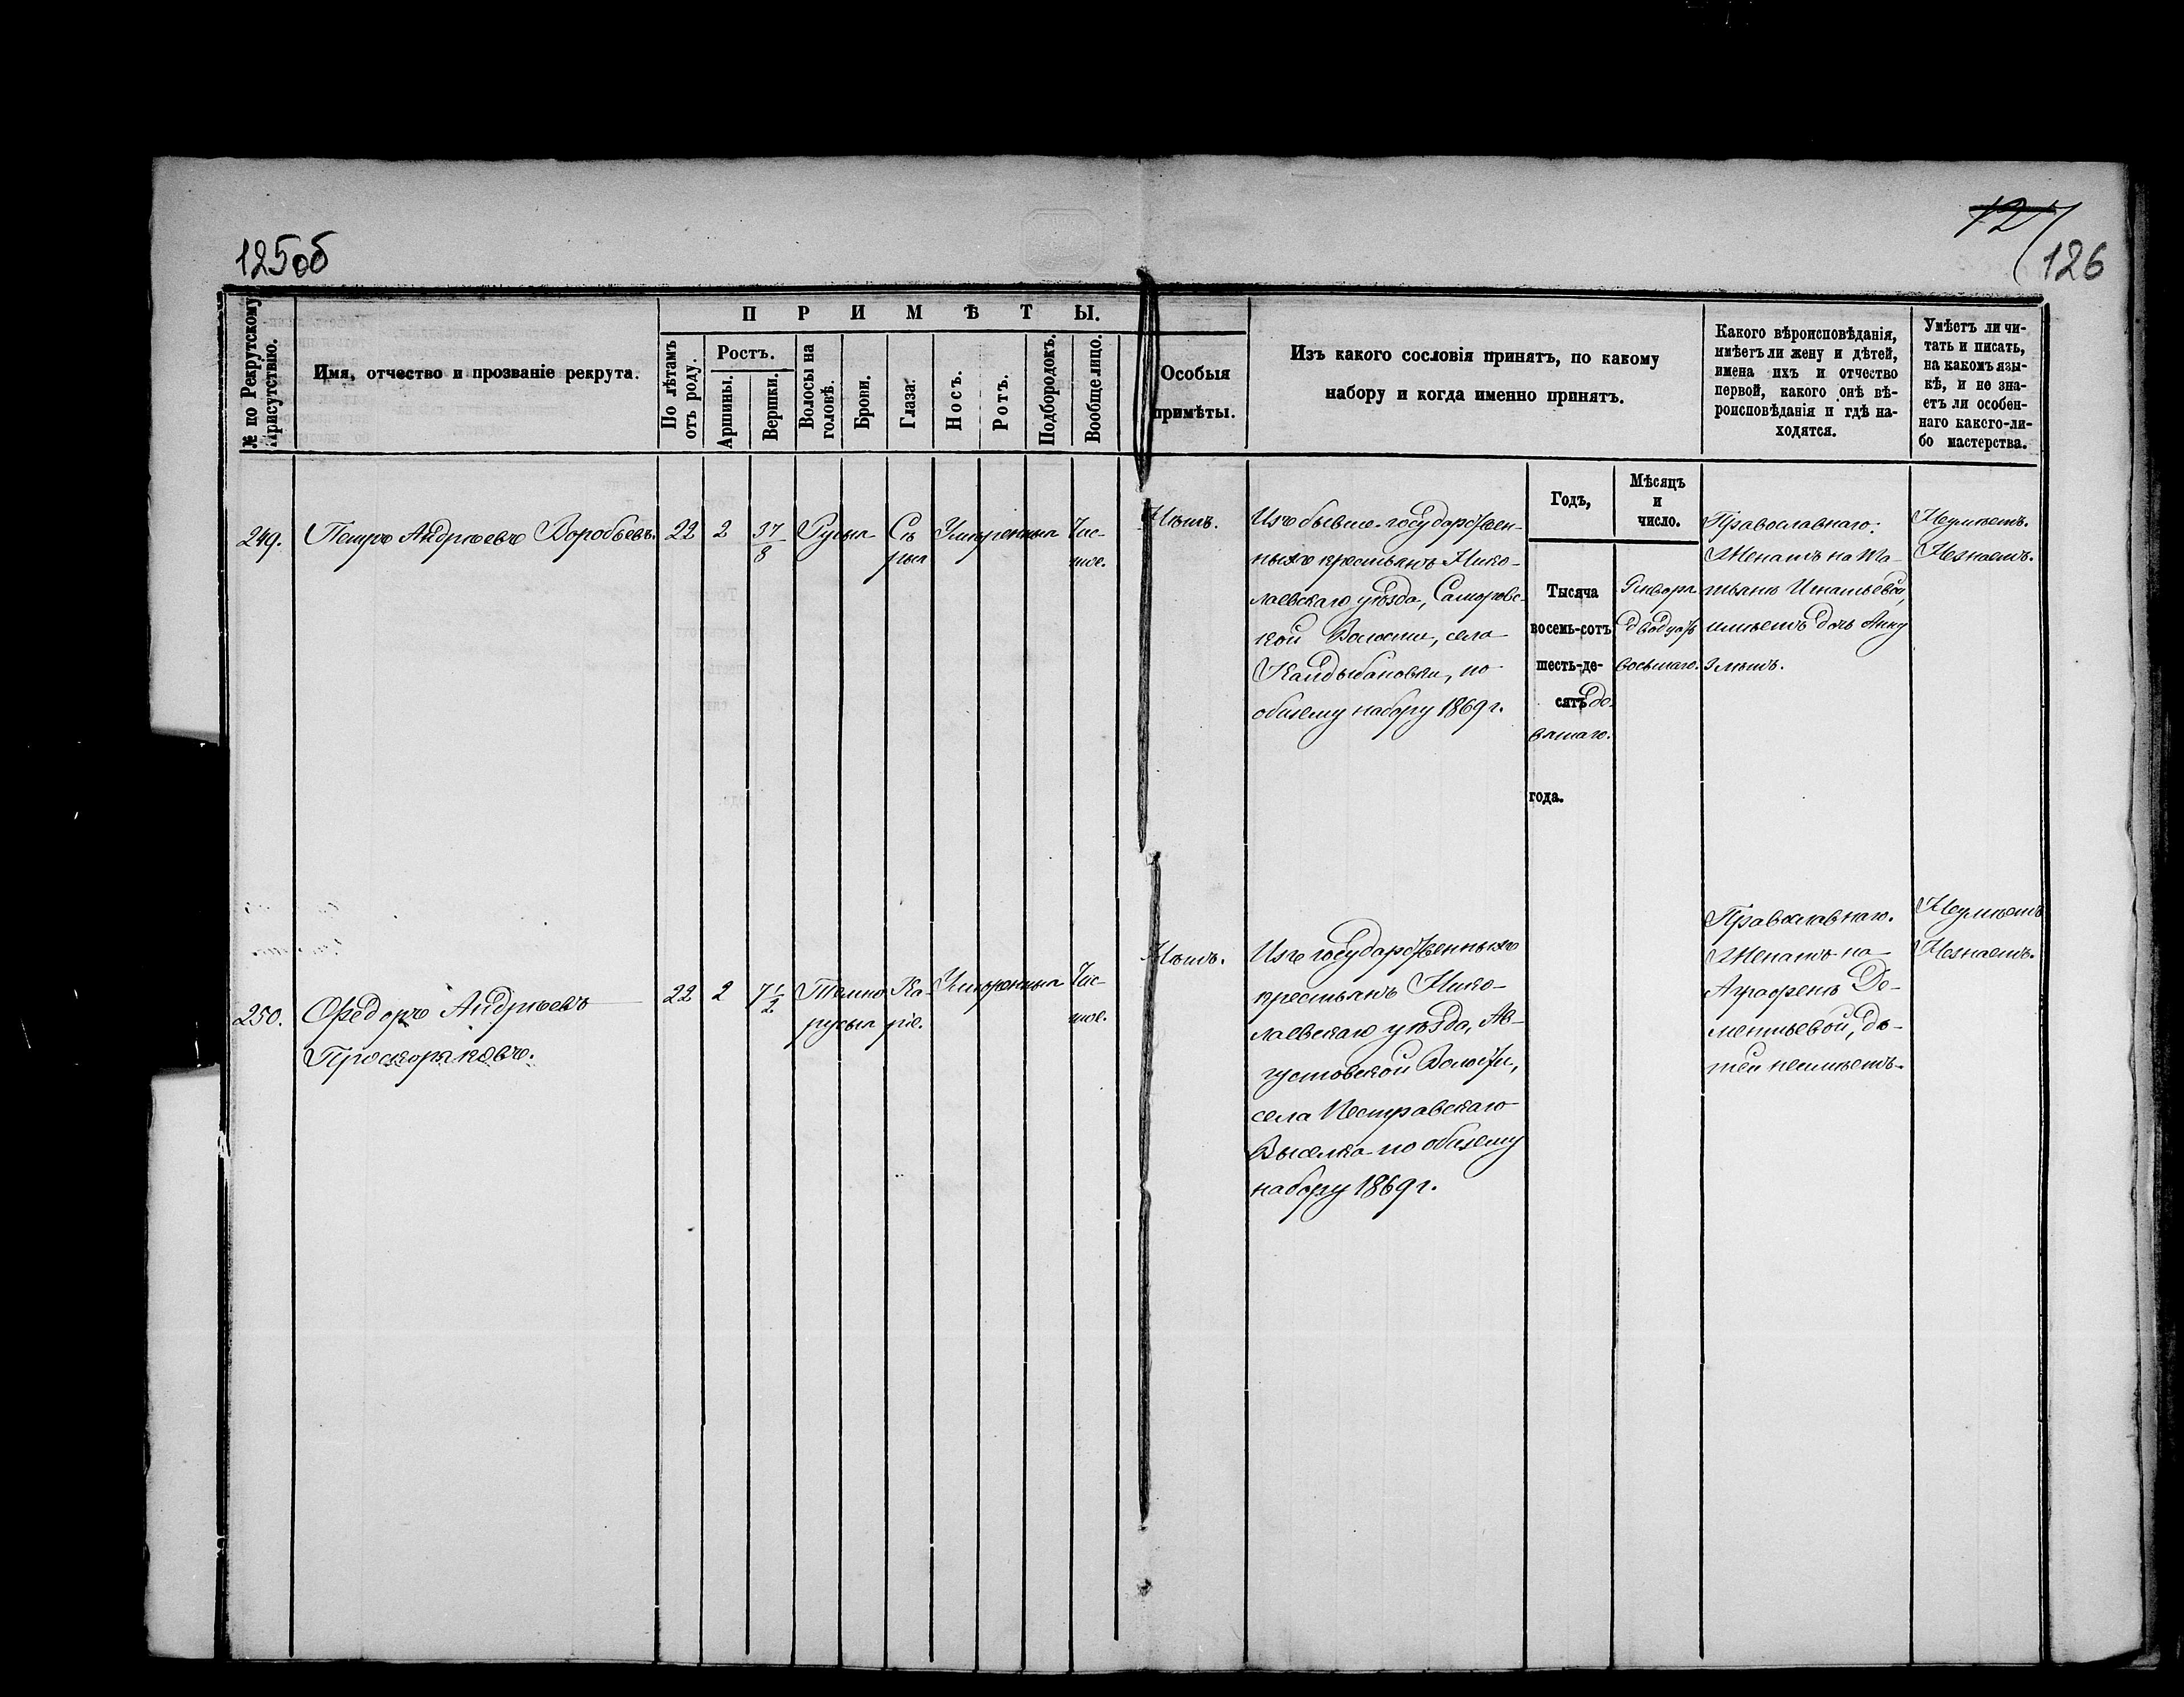 125об
127
126
№ по Рекрутскому Присутствію.
Имя, отчество и прозваніе рекрута.
ПРИМѢТЫ.
По лѣтамъ отъ роду.
Ростъ.
Аршины.
Вершки.
Волосы на головѣ.
Брови.
Глаза.
Носъ.
Ротъ.
Подбородокъ.
Вообще лицо.
Особыя
примѣты.
Изъ какого сословія принятъ, по какому
набору и когда именно принятъ.
Какого вѣроисповѣданія,
имѣетъ ли жену и дѣтей,
имена ихъ и отчество
первой, какого онѣ вѣ-
роисповѣданія и гдѣ на-
ходятся.
Умѣетъ ли чи-
тать и писать,
на какомъ язы-
кѣ, и не зна-
етъ ли особен-
наго какого-ли-
бо мастерства.
Годъ,
Мѣсяцъ
и
число.
249.
Петръ Андреевъ Воробьевъ.
22
2
3 7/8
Русыя
Сѣ
рыя
Умѣренныя
Чис-
тое.
Нѣтъ.
Изъ бывш. государствен-
ныхъ крестьянъ Нико-
лаевскаго уѣзда,
кой Волости, села
Кандыбановки, по
общему набору 1869 г.
Тысяча
восемь-сотъ
шесть-де-
сятъ де-
вятаго.
года.
Января
двадцать
восьмаго.
Православнаго.
Женатъ на Та-
тьянѣ Игнатьевой,
имѣетъ дочь Анну
3 лѣтъ.
Неумѣетъ.
Незнаетъ.
250.
Ѳедоръ Андреевъ
Проскоряковъ.
22
2
7 1/2
Темно
русыя
Ка-
ріе.
Умѣренныя
Чис-
тое.
Нѣтъ.
Изъ государственныхъ
крестьянъ Нико-
лаевскаго уѣзда, Ав-
густовской Волости,
села Пестравскаго
Выселка по общему
набору 1869 г.
Православнаго.
Женатъ на
Аграфенѣ Де-
ментьевой, дѣ-
тей неимѣетъ.
Неумѣетъ
Незнаетъ.